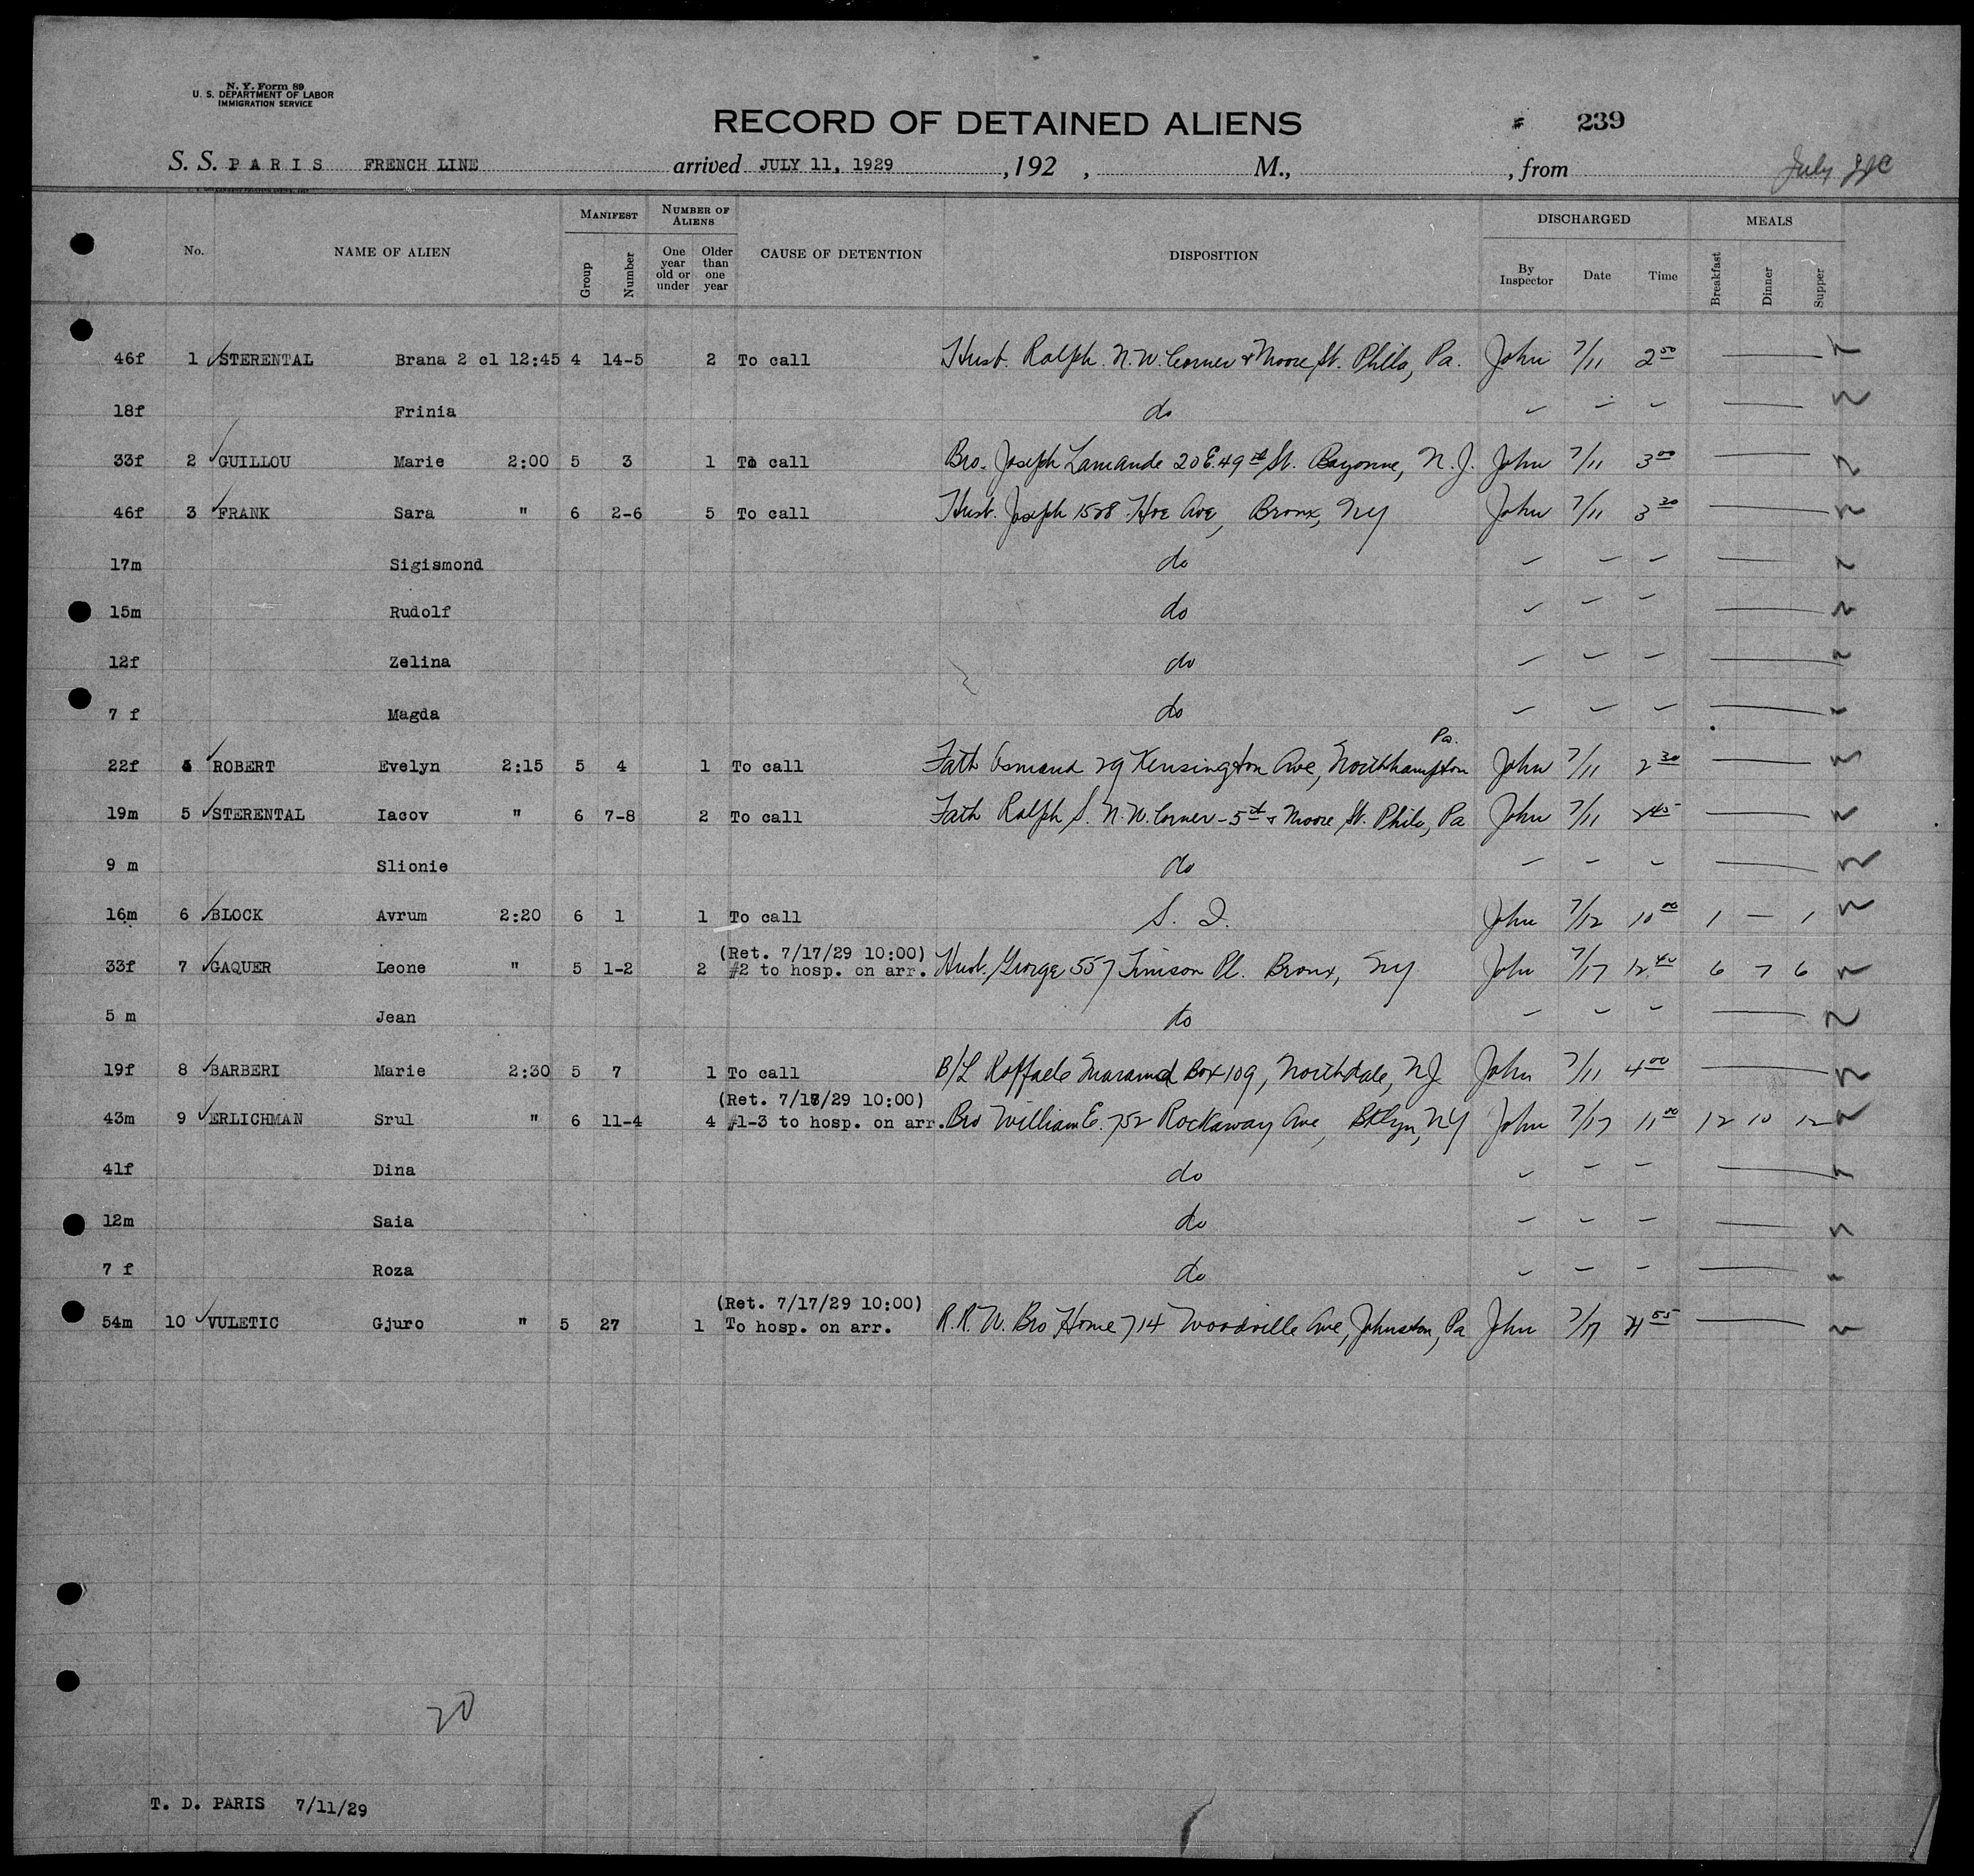 N. Y. Form 89
U. S. DEPARTMENT OF LABOR
IMMIGRATION SERVICE
RECORD OF DETAINED ALIENS # 239
S. S. PARIS FRENCH LINE arrived JULY 11, 1929 , 192 , M., , from July
No. NAME OF ALIEN MANIFEST Group Number NUMBER OF ALIENS One year old or under Older than one year CAUSE OF DETENTION DISPOSITION DISCHARGED By Inspector Date Time MEALS Breakfast Dinner Supper
46f 1 STERENTAL Brana 2 cl 12:45 4 14-5 2 To call Husb. Ralph. N.W. Corner & Moore St. Phila, Pa. John 7/11 2 50
18f Frinia do
33f 2 GUILLOU Marie 2:00 5 3 1 To call Bro. Joseph Lamande 20 E. 49 St. Bayonne, N.J. John 7/11 3 00
46f 3 FRANK Sara " 6 2-6 5 To call Husb. Joseph 1528 Hoe Ave, Bronx, NY John 7/11 3 20
17m Sigismond do
15m Rudolf do
12f Zelina do
7 f Magda do
22f ROBERT Evelyn 2:15 5 4 1 To call Fath 29 Kensington Ave, Northhampton Pa. John 7/11 2 30
19m 5 STERENTAL Iacov " 6 7-8 2 To call Fath Ralph S. N.W. Corner - 5th & Moore St. Phila, Pa John 7/11 2 45
9 m Slionie do
16m 6 BLOCK Avrum 2:20 6 1 1 To call S. I. John 7/12 10 00 1 — 1
(Ret. 7/17/29 10:00)
33f 7 GAQUER Leone " 5 1-2 2 #2 to hosp. on arr. Husb. George 557 Timson Pl. Bronx, NY John 7/17 12 40 6 7 6
5 m Jean do
19f 8 BARBERI Marie 2:30 5 7 1 To call B/L Raffaele Box 109, Northdale, NJ John 7/11 4 00
(Ret. 7/17/29 10:00)
43m 9 ERLICHMAN Srul " 6 11-4 4 #1-3 to hosp. on arr. Bro William E. 752 Rockaway Ave, Bklyn, NY John 7/17 11 00 12 10 12
41f Dina do
12m Saia do
7 f Roza do
(Ret. 7/17/29 10:00)
54m 10 VULETIC Gjuro " 5 27 1 To hosp. on arr. R.R.W. Bro Home 714 Woodville Ave, Johnston, Pa John 7/17 55
20
T. D. PARIS 7/11/29